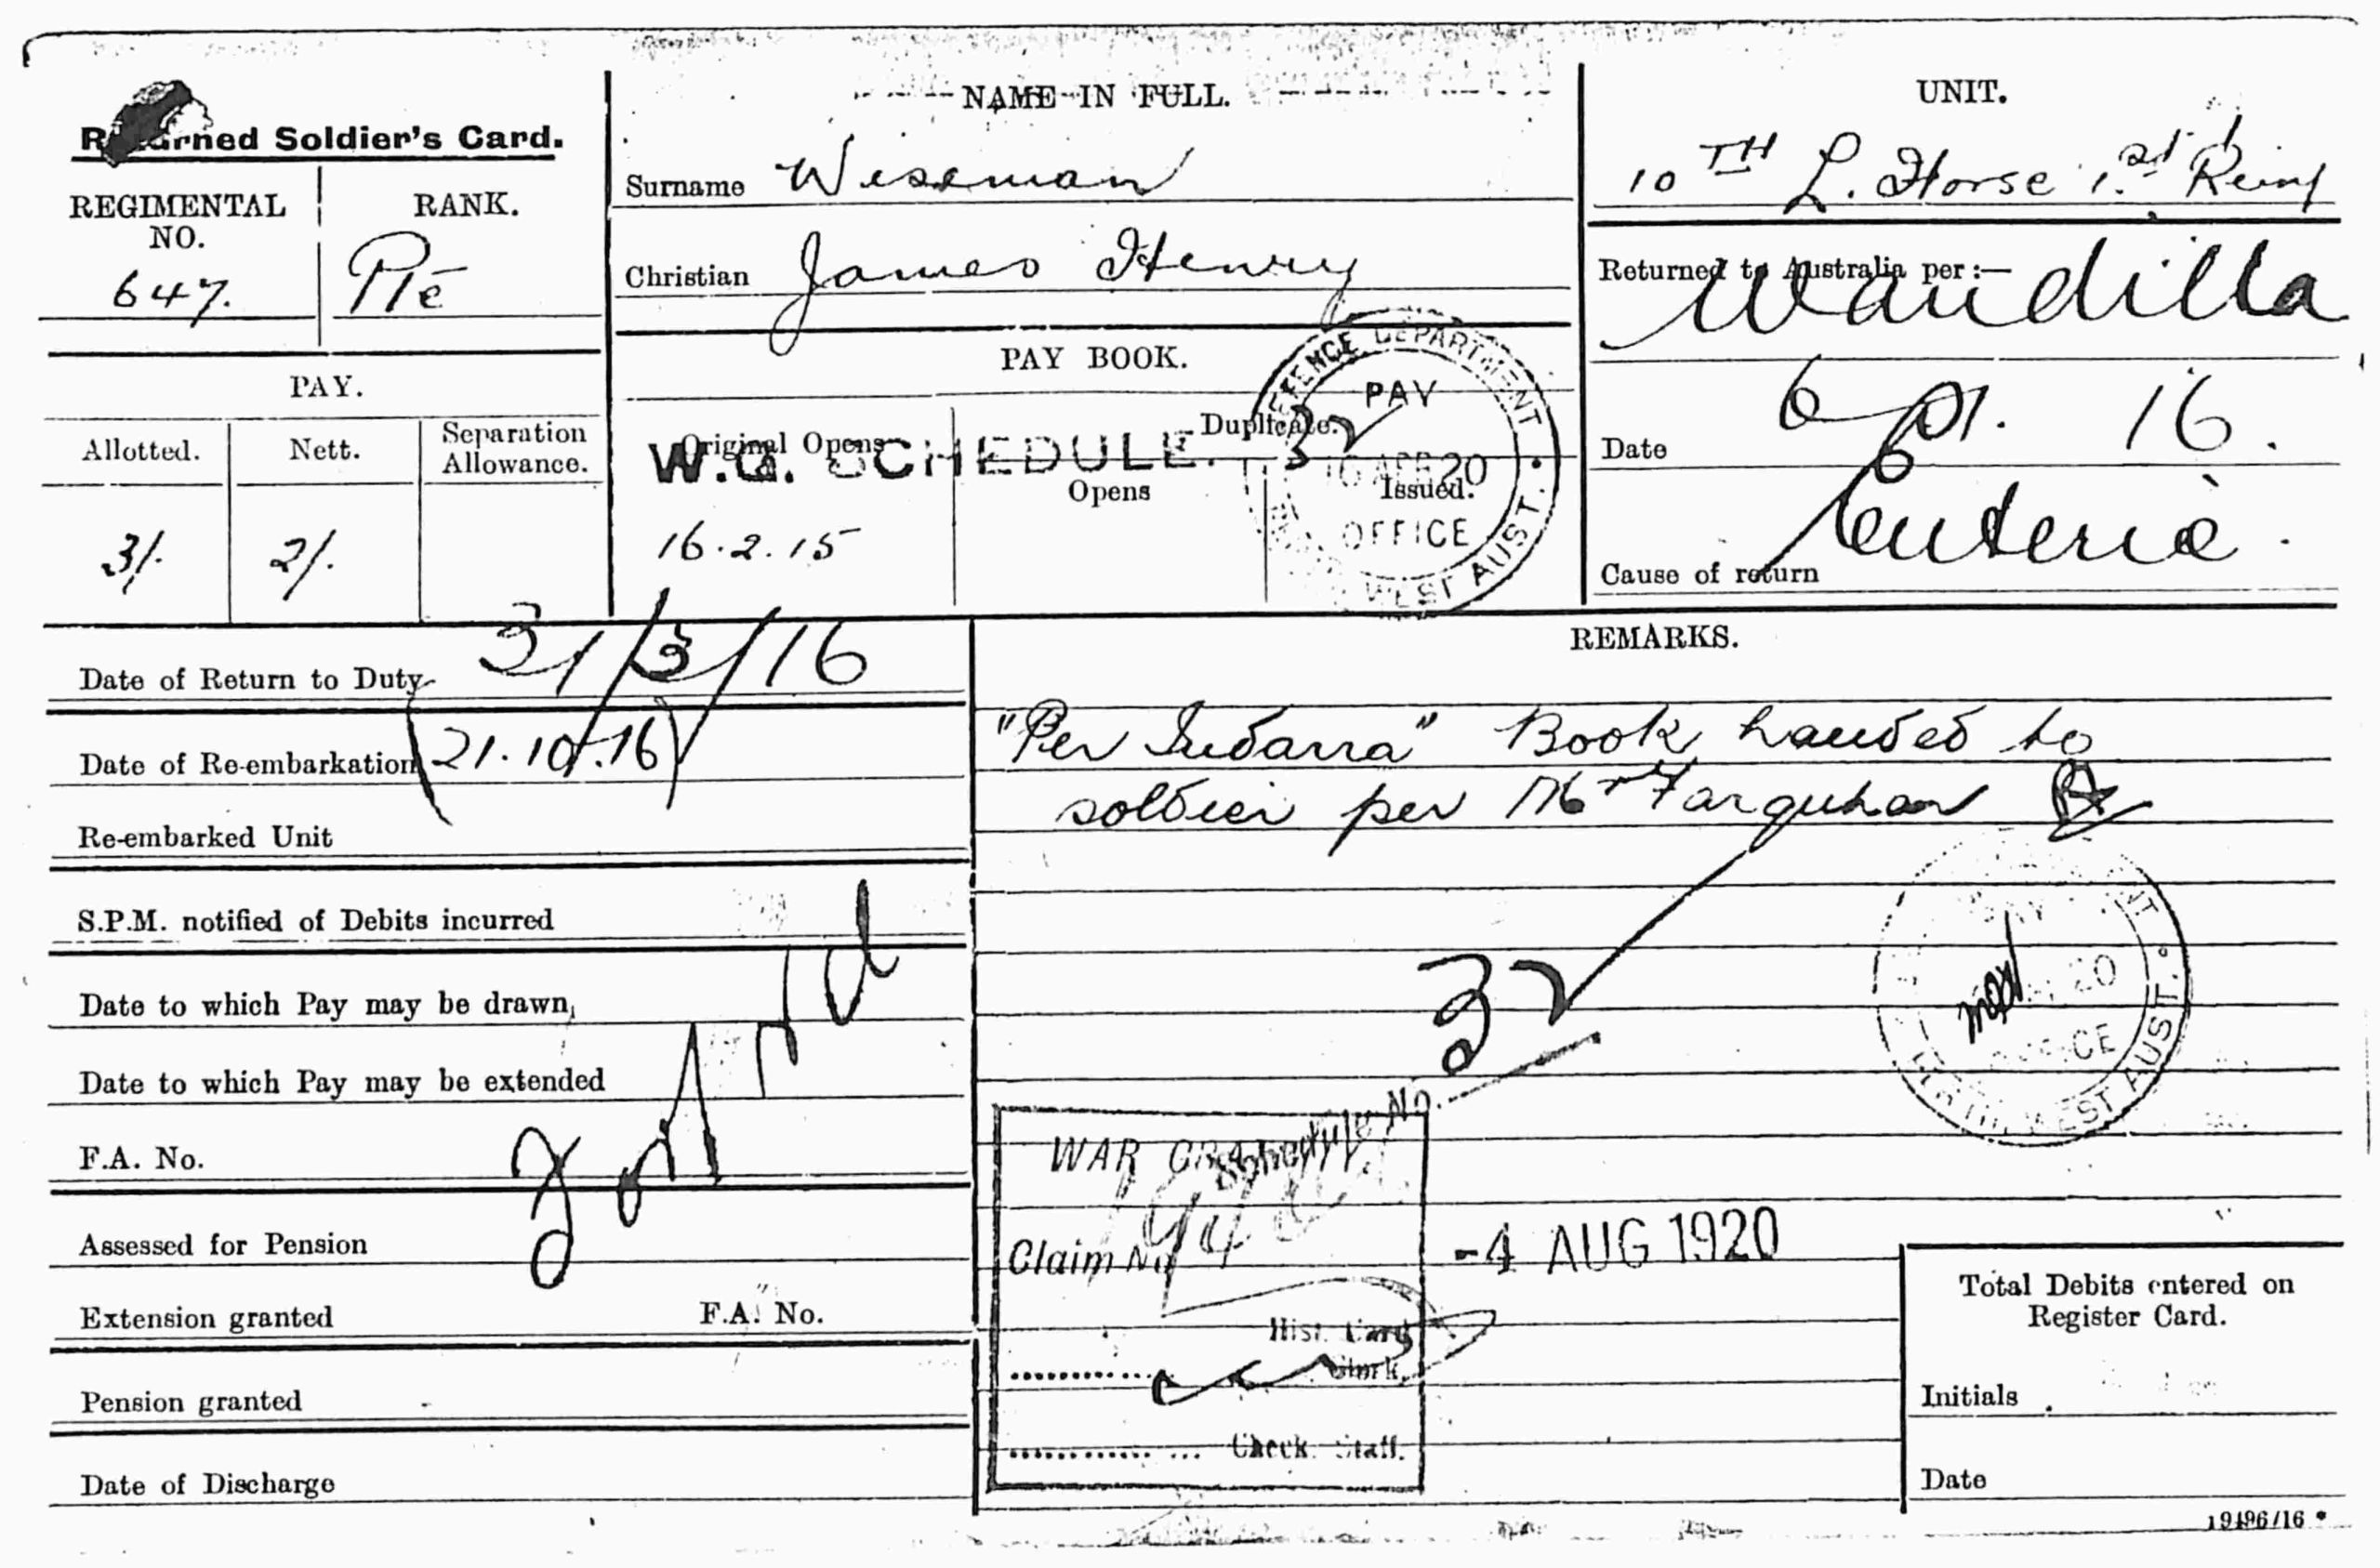 Returned Soldier's Card.
REGIMENTAL NO.
647.
RANK.
Pte
NAME IN FULL.
Surname Wiseman
Christian James Henry
UNIT.
10TH L. Horse 1st Reinf
Returned to Australia per:—
Wandilla
Date 6 . 16.
Cause of return Enteric.
PAY.
Allotted.
Nett.
Separation Allowance.
3/.
2/.
PAY BOOK.
Original Opens
Duplicate.
W.G. SCHEDULE. 32
Opens
Issued.
16.2.15
DEFENCE DEPARTMENT
PAY
16 APR 20
OFFICE
WEST AUST.
Date of Return to Duty 31/3/16
Date of Re-embarkation (21.10.16)
Re-embarked Unit
S.P.M. notified of Debits incurred
Date to which Pay may be drawn
Date to which Pay may be extended
F.A. No.
Assessed for Pension
Extension granted F.A. No.
Pension granted
Date of Discharge
REMARKS.
"Per Indarra" Book handed to
soldier per Mr Farquhar
32
20
WEST AUST.
WAR GRATUITY.
Schedule No.
Claim No
-4 AUG 1920
Hist. Card
Clerk.
Check Staff.
Total Debits entered on
Register Card.
Initials
Date
19496/16